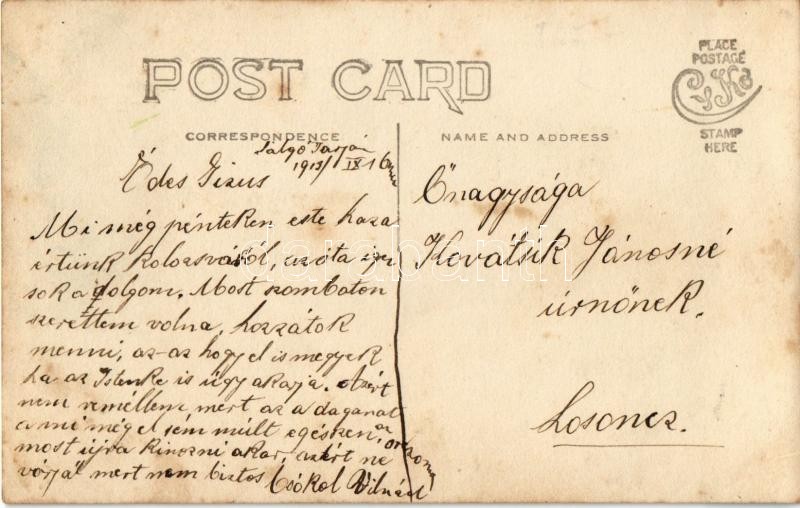 POST CARD
PLACE
POSTAGE
STAMP
HERE
CORRESPONDENCE
NAME AND ADDRESS
Salgó Tarján
1913/ IX 16
Édes Gizus
Mi még pénteken este haza
értünk Kolozsvárol, azota
sok a dolgom. Most szombaton
szerettem volna, hozzátok
menni, az-az hogy el is megyek
ha az Istenke is úgy akarja. Azért
nem reméllem mert az a daganat
a mi még el sem múlt egészen, az
most újra kinozni akar, azért ne
várjál mert nem biztos Csókol
Őnagysága
Kovátsik Jánosné
úrnőnek.
Losoncz.
darabanth